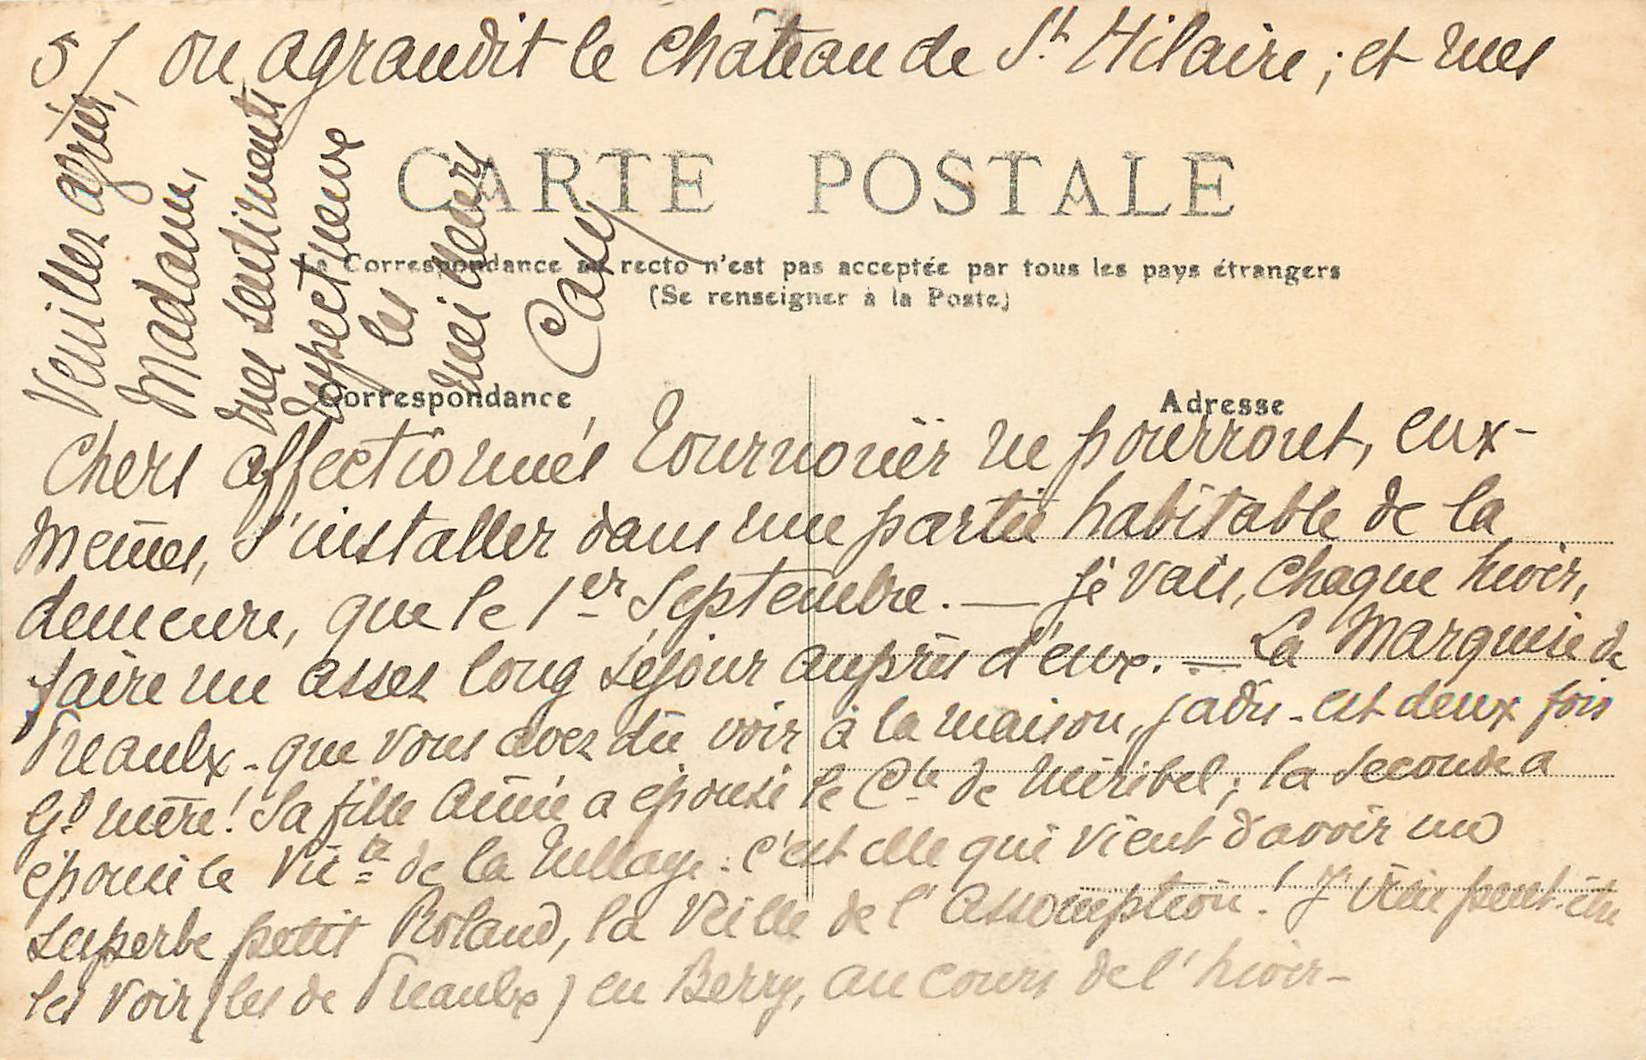 5/ on agrandit le château de St Hilaire ; et mes
CARTE POSTALE
La Correspondance au recto n'est pas acceptée par tous les pays étrangers
(Se renseigner à la Poste)
Correspondance
Adresse
chers affectionnés Tournouër ne pourront, eux-
mêmes, s'installer dans une partie habitable de la
demeure, que le 1er Septembre. — Je vais, chaque hiver,
faire un assez long séjour auprès d'eux. — La Marquise de
Preaulx - que vous avez dû voir à la maison, jadis - est deux fois
Gd mère ! Sa fille aînée a épousé le Cte de Miribel ; la seconde a
épousé le Victe de la : c'est elle qui vient d'avoir un
superbe petit Roland, la Veille de l'Assomption ! J'irai peut-être
les voir (les de Preaulx) en Berry, au cours de l'hiver -
Veuillez agréer,
Madame,
mes sentiments
respectueux
les
meilleurs